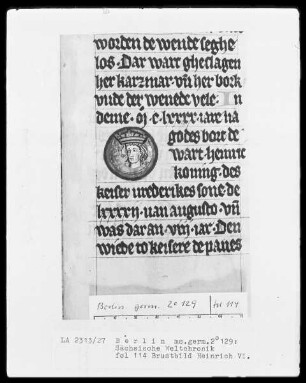 worden de wende seghe
los. Dar wart gheslagen
her karzmar vñ her bork
vnde der wenede vele. In
deme. ɱ. c. lxxxx. iare na
godes bort de
wart. heinric
koning. des
keiser vrederikes sone de
lxxxxij. uan augusto. Vñ
was dar an. viij. iar. Den
wiede to keisere de paues
Berlin germ. 2° 129 fol 114
LA 2393/27 Berlin ms.germ.2°129:
Sächsische Weltchronik
fol 114 Brustbild Heinrich VI.